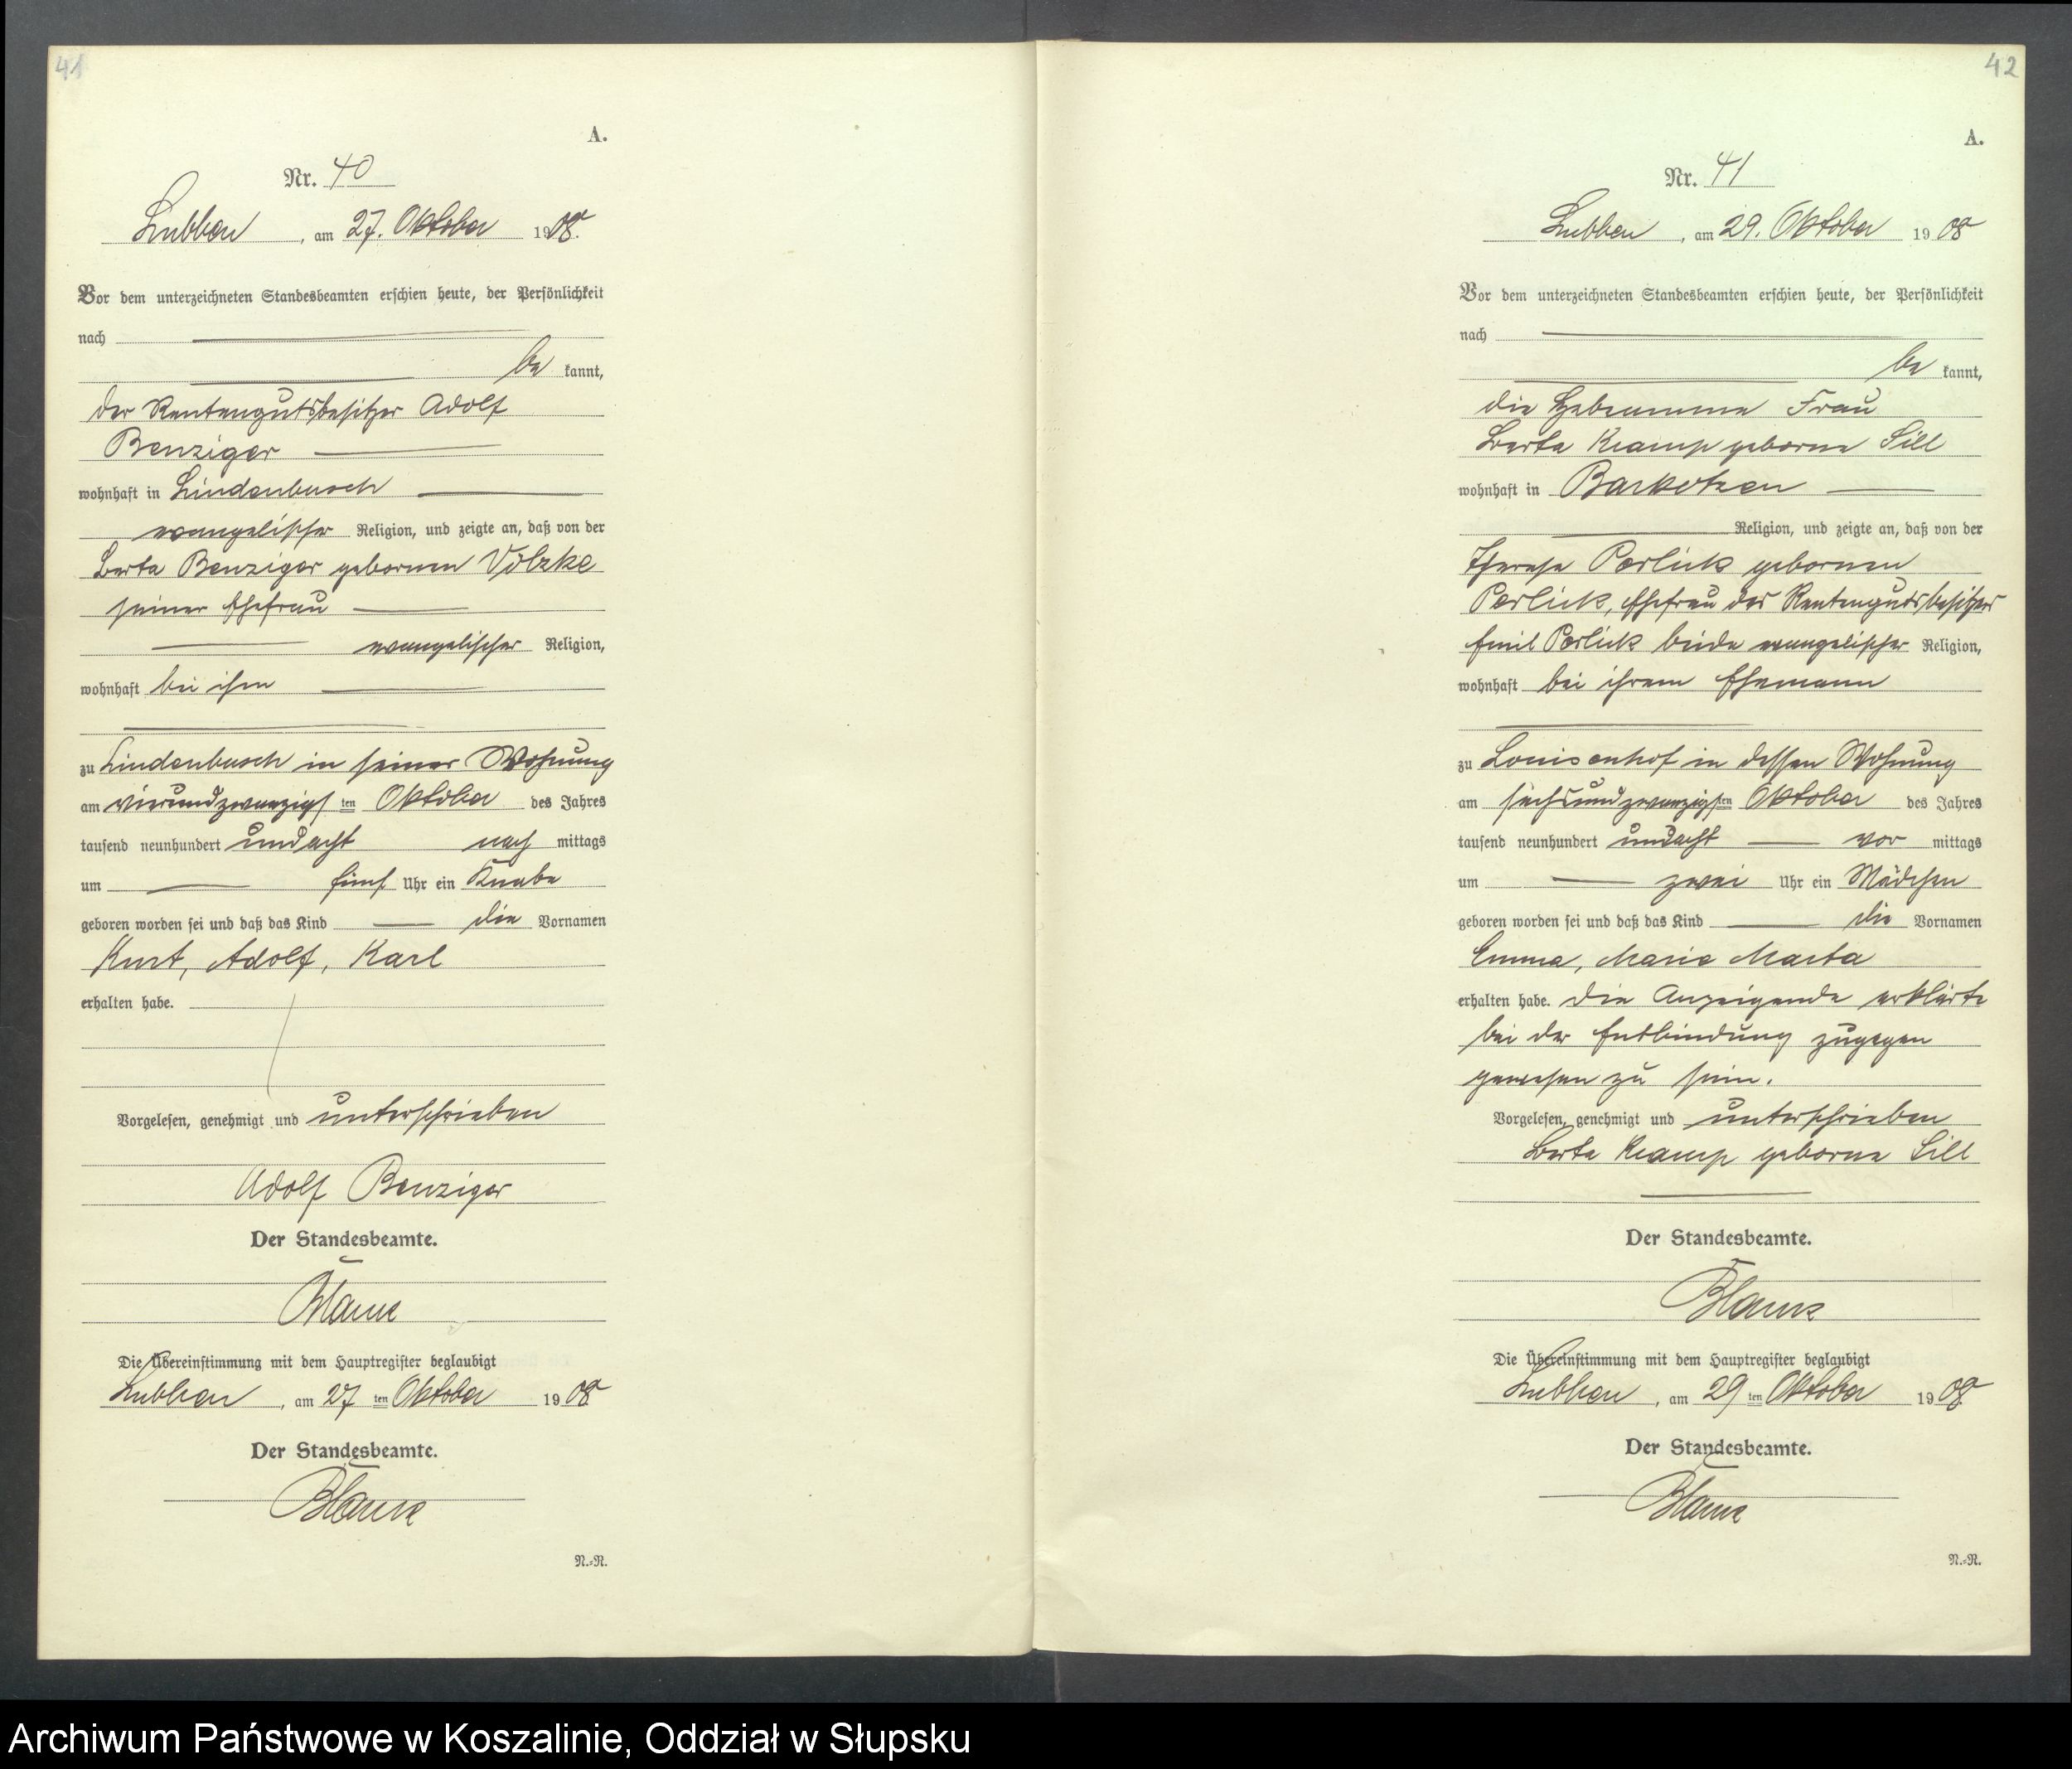 41
A.
Nr. 40
Lubben, am 27. Oktober 1908.
Vor dem unterzeichneten Standesbeamten erschien heute, der Persönlichkeit
nach
be kannt,
der Rentengutsbesitzer Adolf
Benziger
wohnhaft in Lindenbusch
evangelischer Religion, und zeigte an, daß von der
Berta Benziger gebornen Völzke
seiner Ehefrau
evangelischer Religion,
wohnhaft bei ihm
zu Lindenbusch in seiner Wohnung
am vierundzwanzigsten Oktober des Jahres
tausend neunhundert undacht nach mittags
um fünf Uhr ein Knabe
geboren worden sei und daß das Kind die Vornamen
Kurt, Adolf, Karl
erhalten habe.
Vorgelesen, genehmigt und unterschrieben
Adolf Benziger
Der Standesbeamte.
Die Übereinstimmung mit dem Hauptregister beglaubigt
Lubben, am 27ten Oktober 1908
Der Standesbeamte.
N.=N.
42
A.
Nr. 41
Lubben, am 29. Oktober 1908
Vor dem unterzeichneten Standesbeamten erschien heute, der Persönlichkeit
nach
be kannt,
die Hebamme Frau
Berta Kramp geborne Sill
wohnhaft in Barkotzen
Religion, und zeigte an, daß von der
Therese Perlick gebornen
Perlick, Ehefrau des Rentengutsbesitzers
Emil Perlick beide evangelischer Religion,
wohnhaft bei ihrem Ehemann
zu Louisenhof in dessen Wohnung
am sechsundzwanzigsten Oktober des Jahres
tausend neunhundert undacht vor mittags
um zwei Uhr ein Mädchen
geboren worden sei und daß das Kind die Vornamen
Emma, Marie Marta
erhalten habe. Die Anzeigende erklärte
bei der Entbindung zugegen
gewesen zu sein.
Vorgelesen, genehmigt und unterschrieben
Berta Kramp geborne Sill
Der Standesbeamte.
Die Übereinstimmung mit dem Hauptregister beglaubigt
Lubben, am 29ten Oktober 1908.
Der Standesbeamte.
N.=N.
Archiwum Państwowe w Koszalinie, Oddział w Słupsku